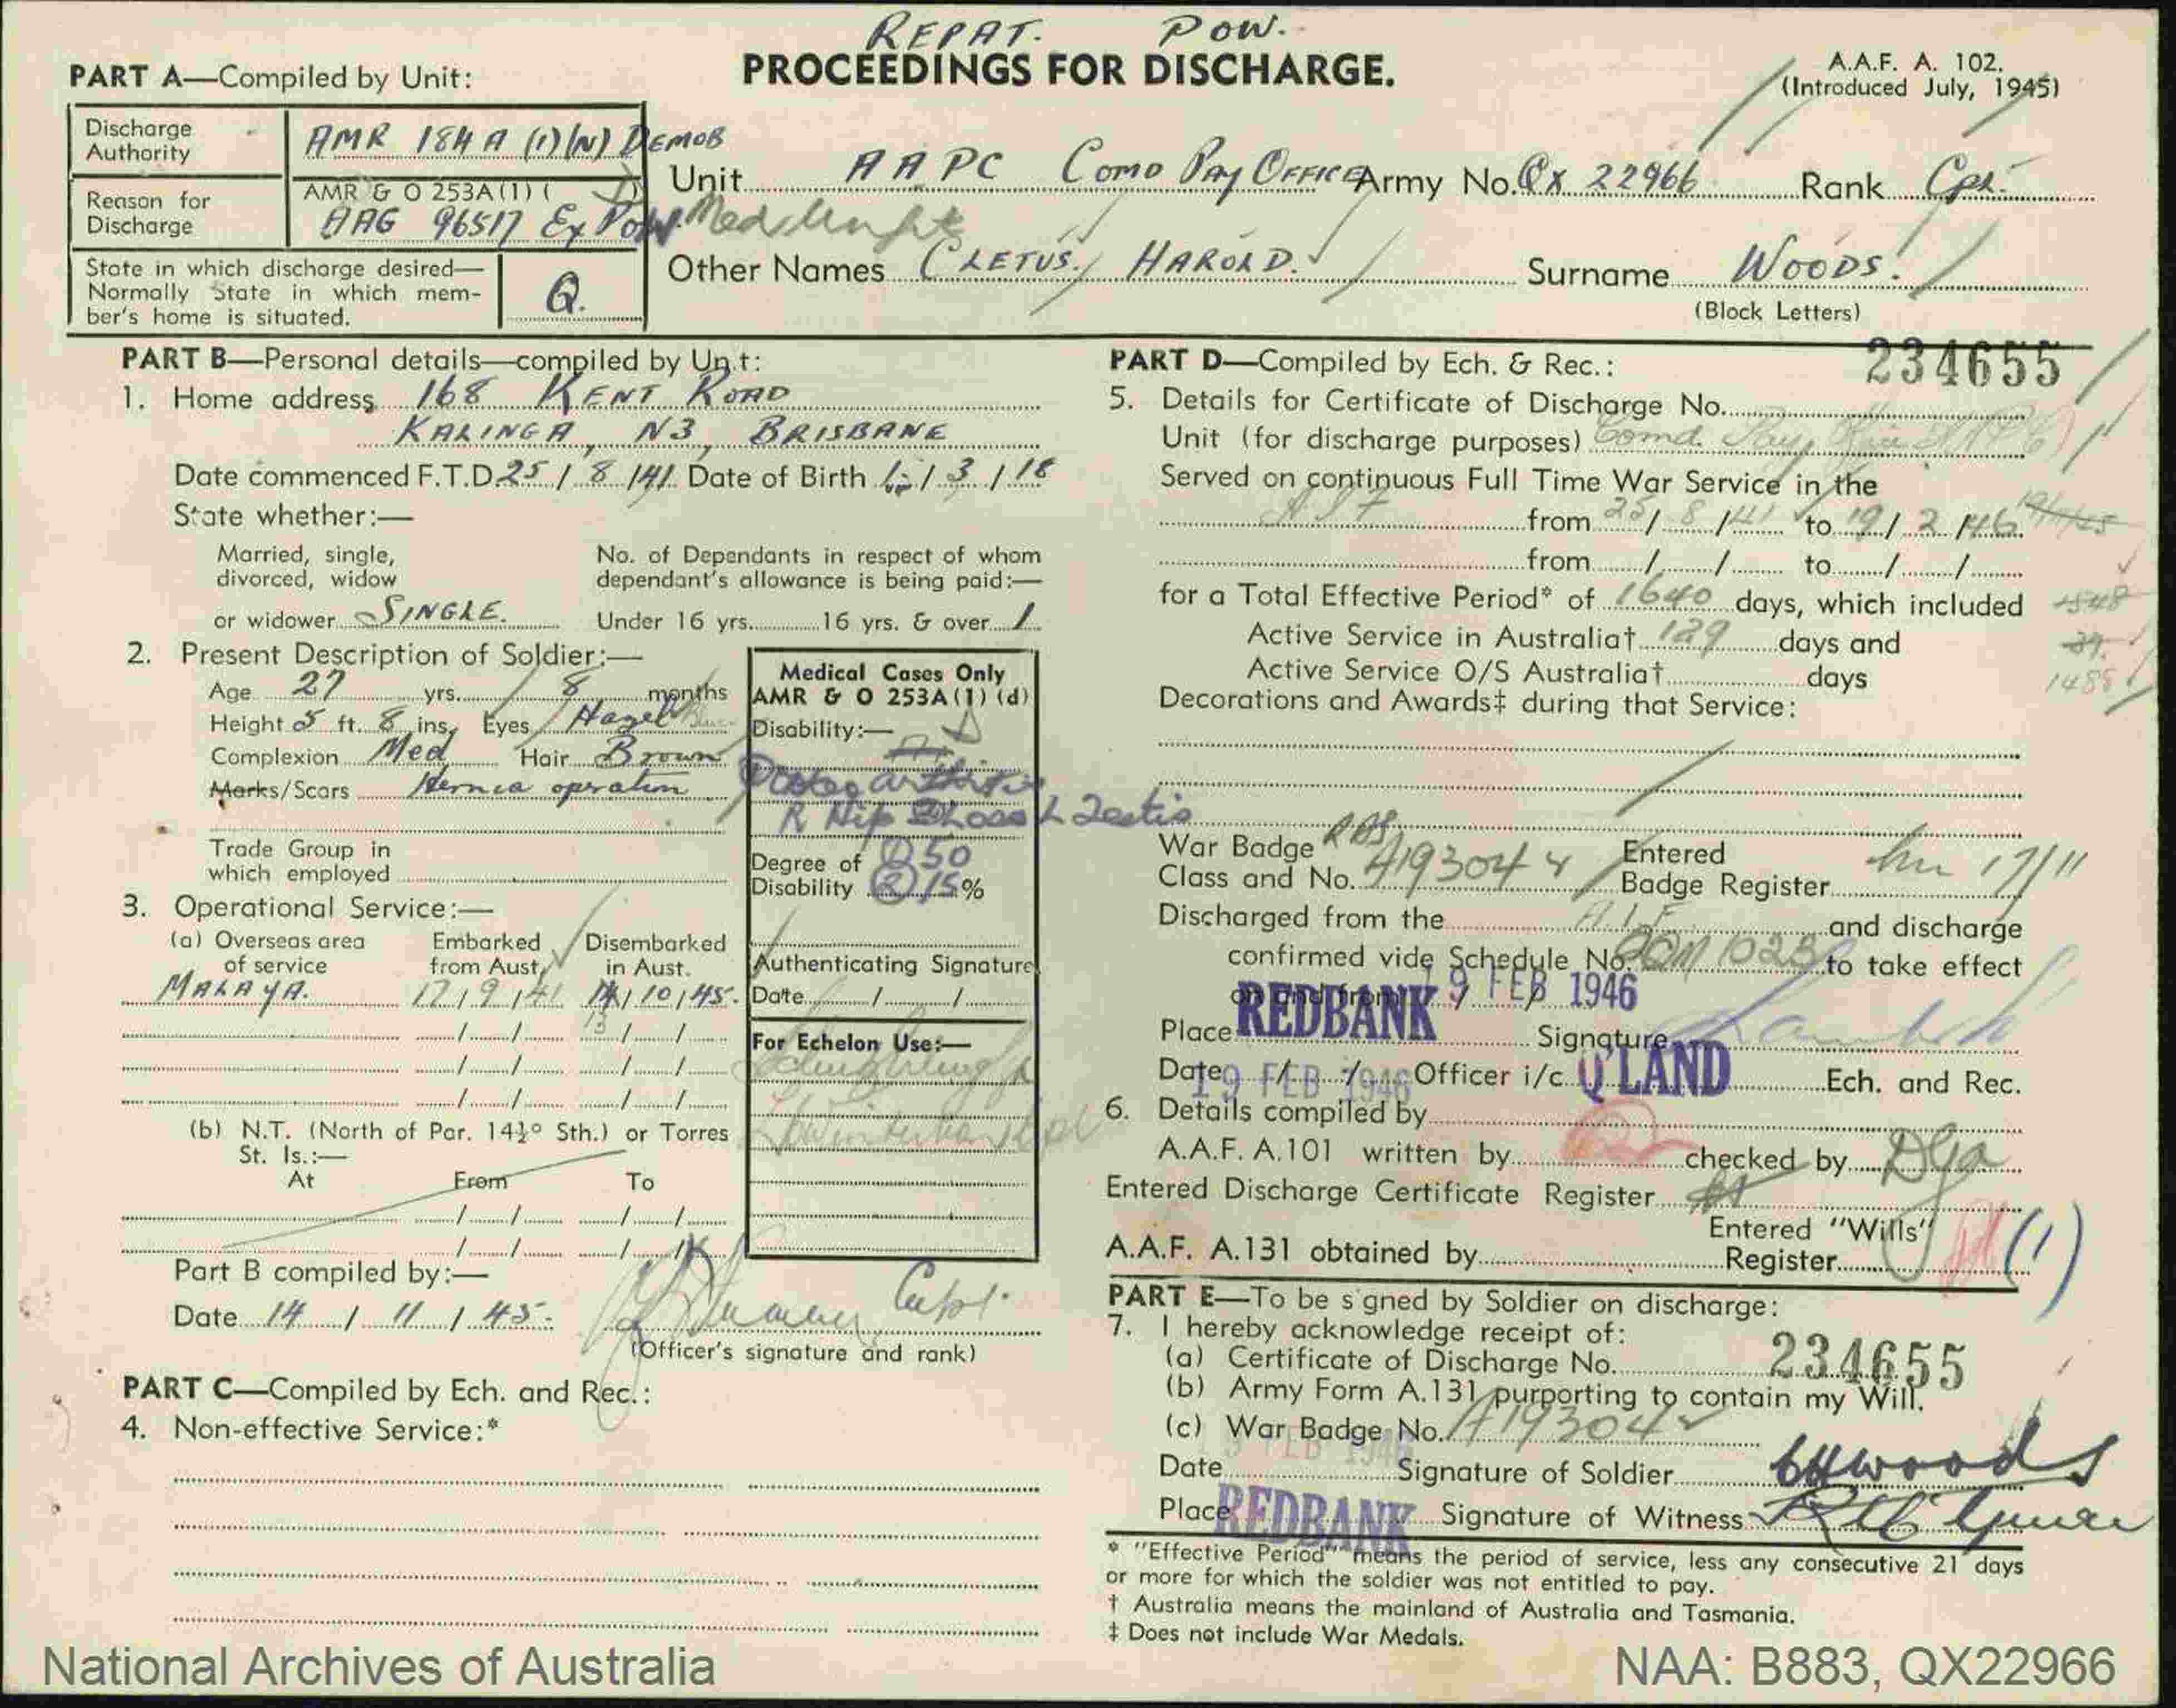 REPAT. POW.
PROCEEDINGS FOR DISCHARGE.
A.A.F. A. 102.
(Introduced July, 1945)
PART A—Compiled by Unit:
Discharge Authority AMR 184 A (1)(N) DEMOB
Reason for Discharge AMR & O 253A(1) ( )
AAG 96517 Ex POW. Med Unfit
State in which discharge desired—
Normally State in which mem-
ber's home is situated. Q.
Unit AAPC COMO PAY OFFICE Army No. QX 22966 Rank Cpl.
Other Names CLETUS, HAROLD. Surname WOODS.
(Block Letters)
PART B—Personal details—compiled by Unit:
1. Home address 168 KENT ROAD
KALINGA, N3, BRISBANE
Date commenced F.T.D. 25/8/41 Date of Birth 1/3/18
State whether:—
Married, single,
divorced, widow
or widower SINGLE.
No. of Dependants in respect of whom
dependant's allowance is being paid:—
Under 16 yrs. 16 yrs. & over 1
2. Present Description of Soldier:—
Age 27 yrs. 8 months
Height 5 ft. 8 ins. Eyes Hazel
Complexion Med Hair Brown
Marks/Scars Hernia operation
Trade Group in
which employed
Medical Cases Only
AMR & O 253A(1)(d)
Disability:—
Osteo arthritis
R Hip 2 Loss L Testis
Degree of
Disability (1) 50
(2) 15%
Authenticating Signature
Date / /
For Echelon Use:—
3. Operational Service:—
(a) Overseas area
of service
Embarked
from Aust.
Disembarked
in Aust.
MALAYA. 17/9/41 14/10/45.
13
(b) N.T. (North of Par. 14½° Sth.) or Torres
St. Is.:—
At From To
Part B compiled by:—
Date 14/11/45. Capt.
(Officer's signature and rank)
PART C—Compiled by Ech. and Rec.:
4. Non-effective Service:*
PART D—Compiled by Ech. & Rec.:
234655
5. Details for Certificate of Discharge No.
Unit (for discharge purposes) Comd. Pay
Served on continuous Full Time War Service in the
AIF from 25/8/41 to 19/2/46
from / / to / /
for a Total Effective Period* of 1640 days, which included 1548
Active Service in Australia† 129 days and
Active Service O/S Australia† days 1488
Decorations and Awards‡ during that Service:
War Badge RAS
Class and No. A193044 Entered
Badge Register 17/11
Discharged from the A.I.F and discharge
confirmed vide Schedule No. to take effect
on and from 19 FEB 1946
Place REDBANK Signature
Date 19 FEB 1946 Officer i/c Q'LAND Ech. and Rec.
6. Details compiled by
A.A.F. A.101 written by checked by
Entered Discharge Certificate Register
Entered "Wills"
A.A.F. A.131 obtained by Register (1)
PART E—To be signed by Soldier on discharge:
7. I hereby acknowledge receipt of:
(a) Certificate of Discharge No. 234655
(b) Army Form A.131 purporting to contain my Will.
(c) War Badge No. A193044
Date 19 FEB 1946 Signature of Soldier CHWoods
Place REDBANK Signature of Witness
* "Effective Period" means the period of service, less any consecutive 21 days
or more for which the soldier was not entitled to pay.
† Australia means the mainland of Australia and Tasmania.
‡ Does not include War Medals.
National Archives of Australia
NAA: B883, QX22966